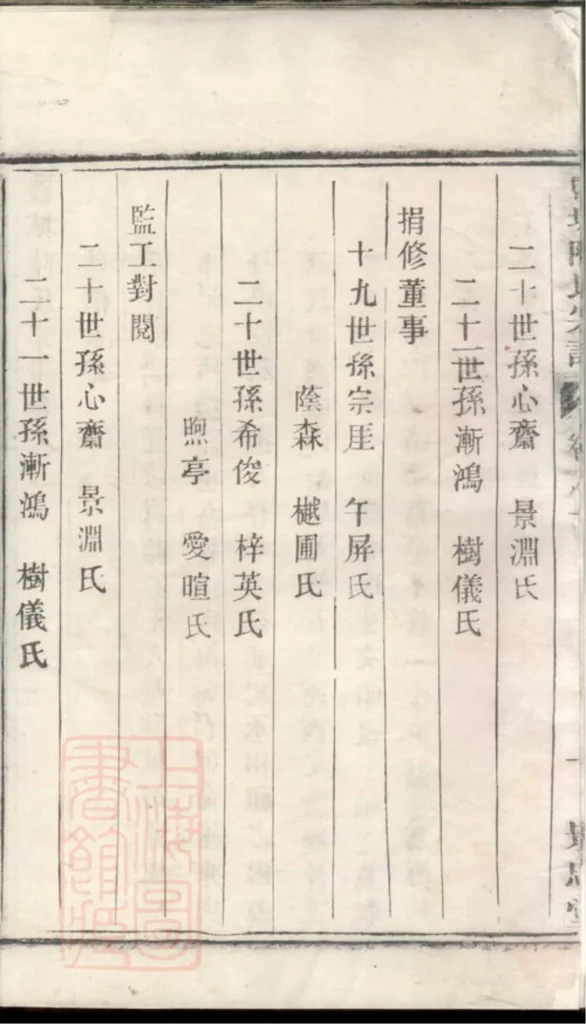 二十世孫心齋 景淵氏
二十一世孫漸鴻 樹儀氏
捐修董事
十九世孫宗厓 午屏氏
蔭森 樾圃氏
二十世孫希俊 梓英氏
煦亭 愛暄氏
監工對閱
二十世孫心齋 景淵氏
二十一世孫漸鴻 樹儀氏
上海圖書館藏